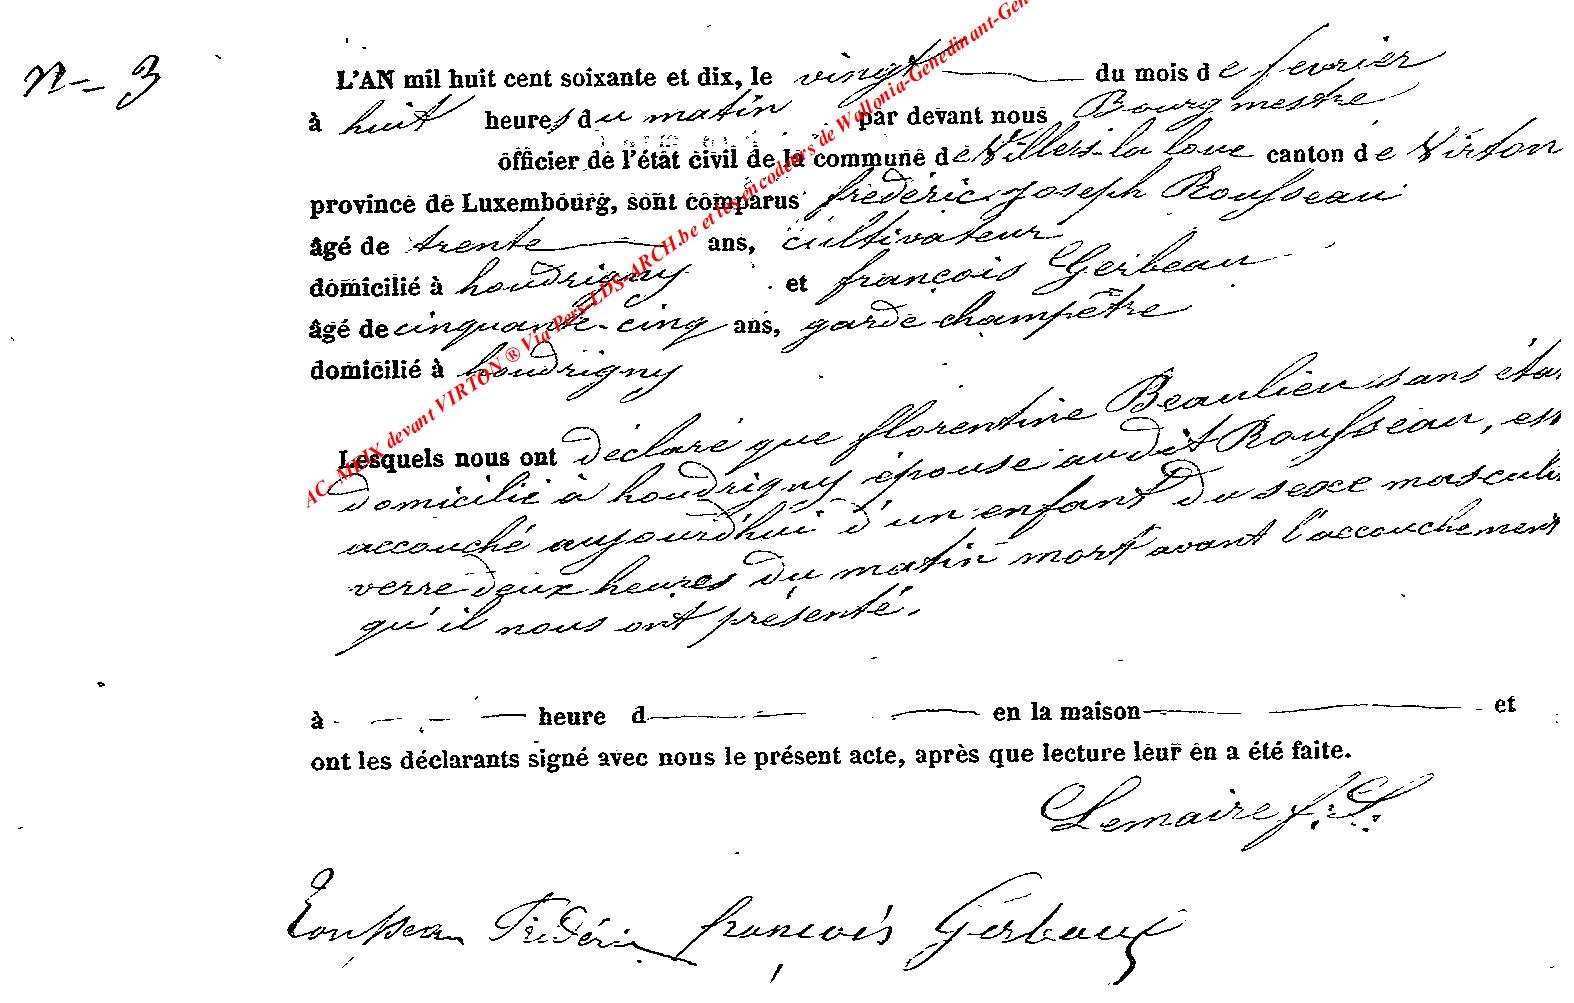 n- 3
L'AN mil huit cent soixante et dix, le vingt du mois de fevrier
à huit heures du matin par devant nous Bourgmestre
officier de l'état civil de la commune de Villers-la loue canton de Virton
province de Luxembourg, sont comparus frederic joseph Rousseau
âgé de trente ans, cultivateur
domicilié à houdrigny et françois Gerbeau
âgé de cinquante-cinq ans, garde champêtre
domicilié à houdrigny
Lesquels nous ont déclaré que florentine Beaulieu sans éta
domicilié à houdrigny épouse au dit Rousseau, es
accouché aujourd'hui d'un enfant du sexe masculi
verre deux heures du matin mort avant l'accouchement
qu'il nous ont présenté.
à heure d en la maison et
ont les déclarants signé avec nous le présent acte, après que lecture leur en a été faite.
Lemaire f. L.
Rousseau Frédéric françois Gerbaux
AC MEIX devant VIRTON ® Via Perx LDS-ARCH.be et les encodeurs de Wallonia-Genedinant-Gen